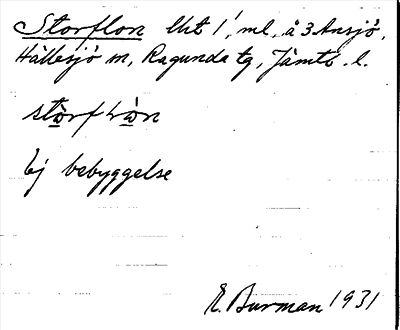 Storflon lht 1, ml, å 3 Ansjö,
Hällesjö sn, Ragunda tg, Jämtl. l.
Ej bebyggelse
E. Burman 1931